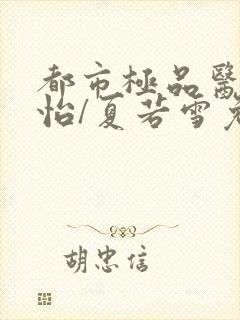 都市極品醫
怡/夏若雪
胡忠信